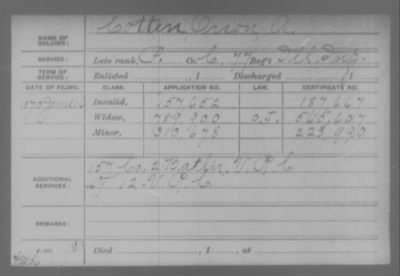 NAME OF SOLDIER: Cotten, Orson, A.
SERVICE: Late rank, P. Co. C, 77 Reg't Ill. Inf.
TERM OF SERVICE: Enlisted , 1 Discharged , 1
DATE OF FILING. CLASS. APPLICATION NO. LAW. CERTIFICATE NO.
Invalid, 157,652 187,667
Widow, 789,900 O.L. 565,607
Minor, 310,678 223,990
ADDITIONAL SERVICES: 157 Co. 2 Batln. V.R.C.
12 V.R.C.
REMARKS:
Died , 1 , at